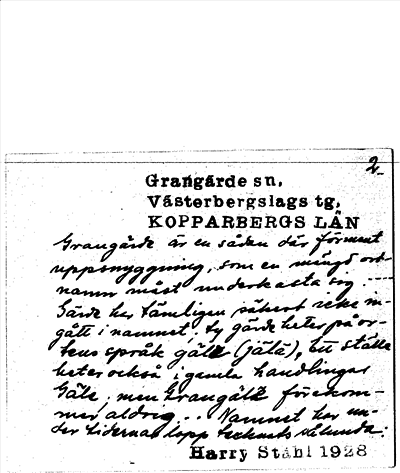 2.
Grangärde sn,
Västerbergslags tg,
KOPPARBERGS LÄN
Grangärde är en sådan där förment
uppsnyggning, som en mängd ort-
namn måst underkasta sig .....
Gärde har tämligen säkert icke in-
gått i namnet, ty gärde heter på or-
tens språk gälä (jälä), ett ställe
heter också i gamla handlingar
Gäle, men Grangälä förekom-
mer aldrig... Namnet har un-
der tidernas lopp tecknats sålunda:
Harry Ståhl 1928